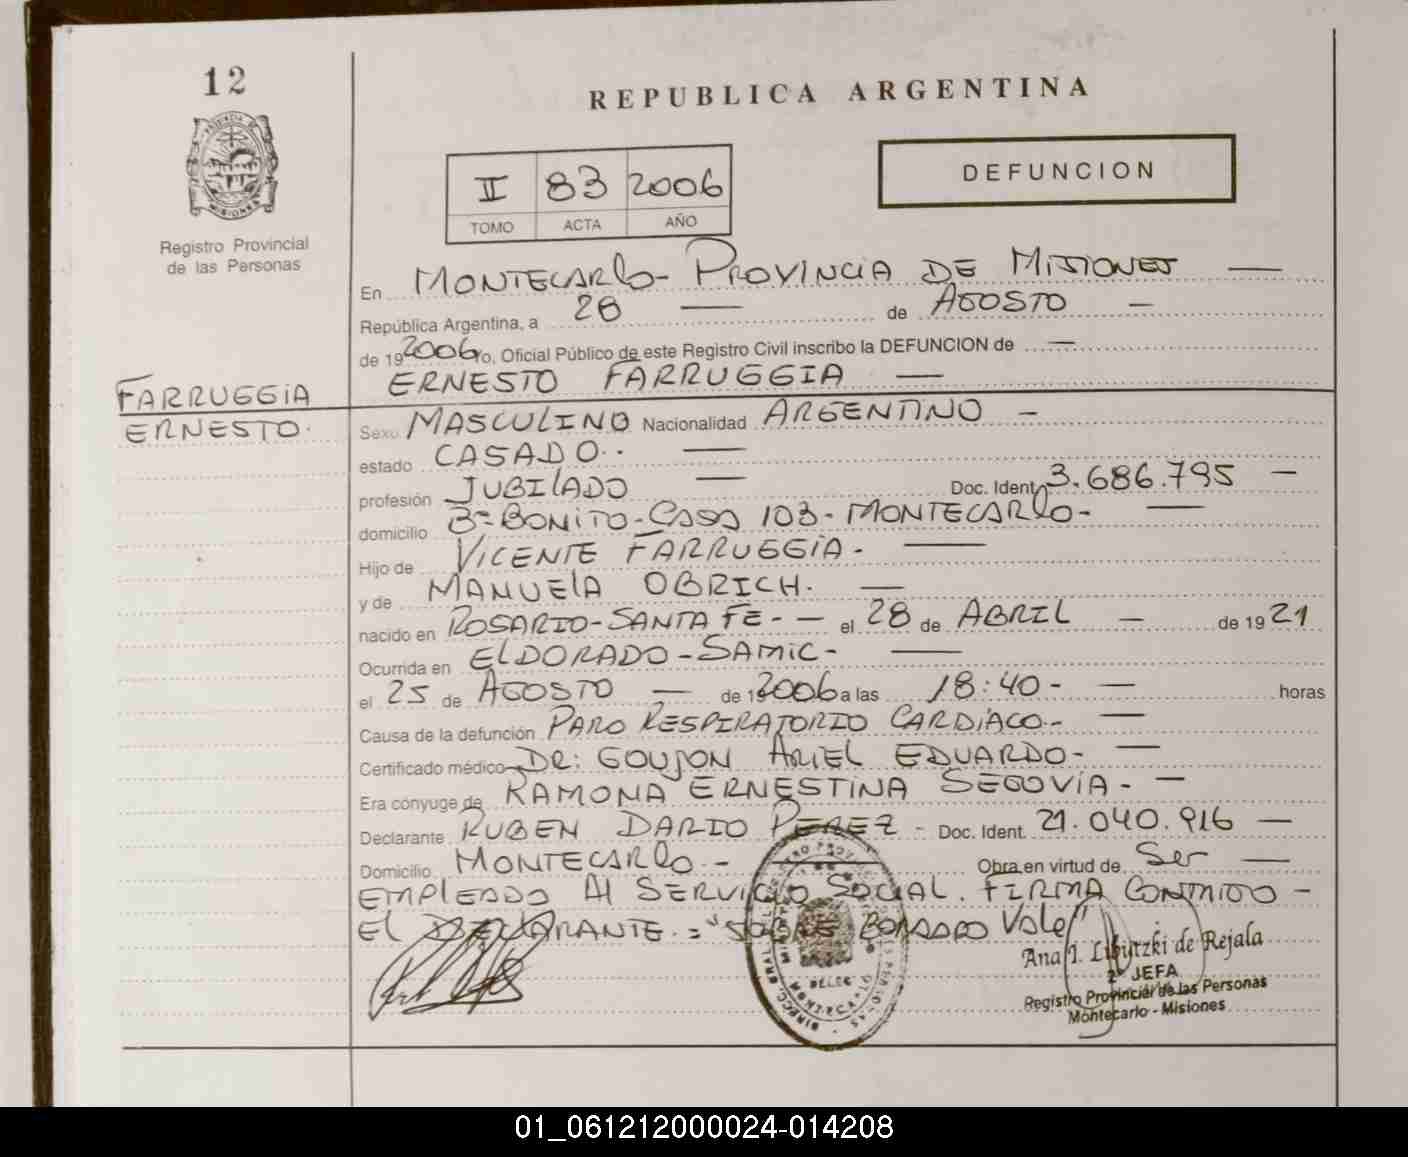 12
REPUBLICA ARGENTINA
II 83 2006
TOMO ACTA AÑO
DEFUNCION
Registro Provincial
de las Personas
En MONTECARLO - PROVINCIA DE MISIONES —
República Argentina, a 28 — de AGOSTO —
de 192006 Yo, Oficial Público de este Registro Civil inscribo la DEFUNCION de —
ERNESTO FARRUGGIA —
FARRUGGIA
ERNESTO.
Sexo MASCULINO Nacionalidad ARGENTINO -
estado CASADO.. —
profesión JUBILADO — Doc. Ident. 3.686.795 —
domicilio Bº BONITO - CASA 103 - MONTECARLO - —
Hijo de VICENTE FARRUGGIA. —
y de MANUELA OBRICH. —
nacido en ROSARIO - SANTA FE - — el 28 de ABRIL — de 1921
Ocurrida en ELDORADO - SAMIC - —
el 25 de AGOSTO — de 192006 a las 18:40 - — horas
Causa de la defunción PARO RESPIRATORIO CARDIACO - —
Certificado médico DR: GOUJON ARIEL EDUARDO - —
Era cónyuge de RAMONA ERNESTINA SEGOVIA - —
Declarante RUBEN DARIO PEREZ - Doc. Ident. 21.040.916 —
Domicilio MONTECARLO - — Obra en virtud de Ser —
EMPLEADO Al SERVICIO SOCIAL. FIRMA CONMIGO -
El DECLARANTE. = "SOBRE BORRADO Vale"
Ana I. Libutzki de Rejala
2º JEFA
Registro Provincial de las Personas
Montecarlo - Misiones
01_061212000024-014208